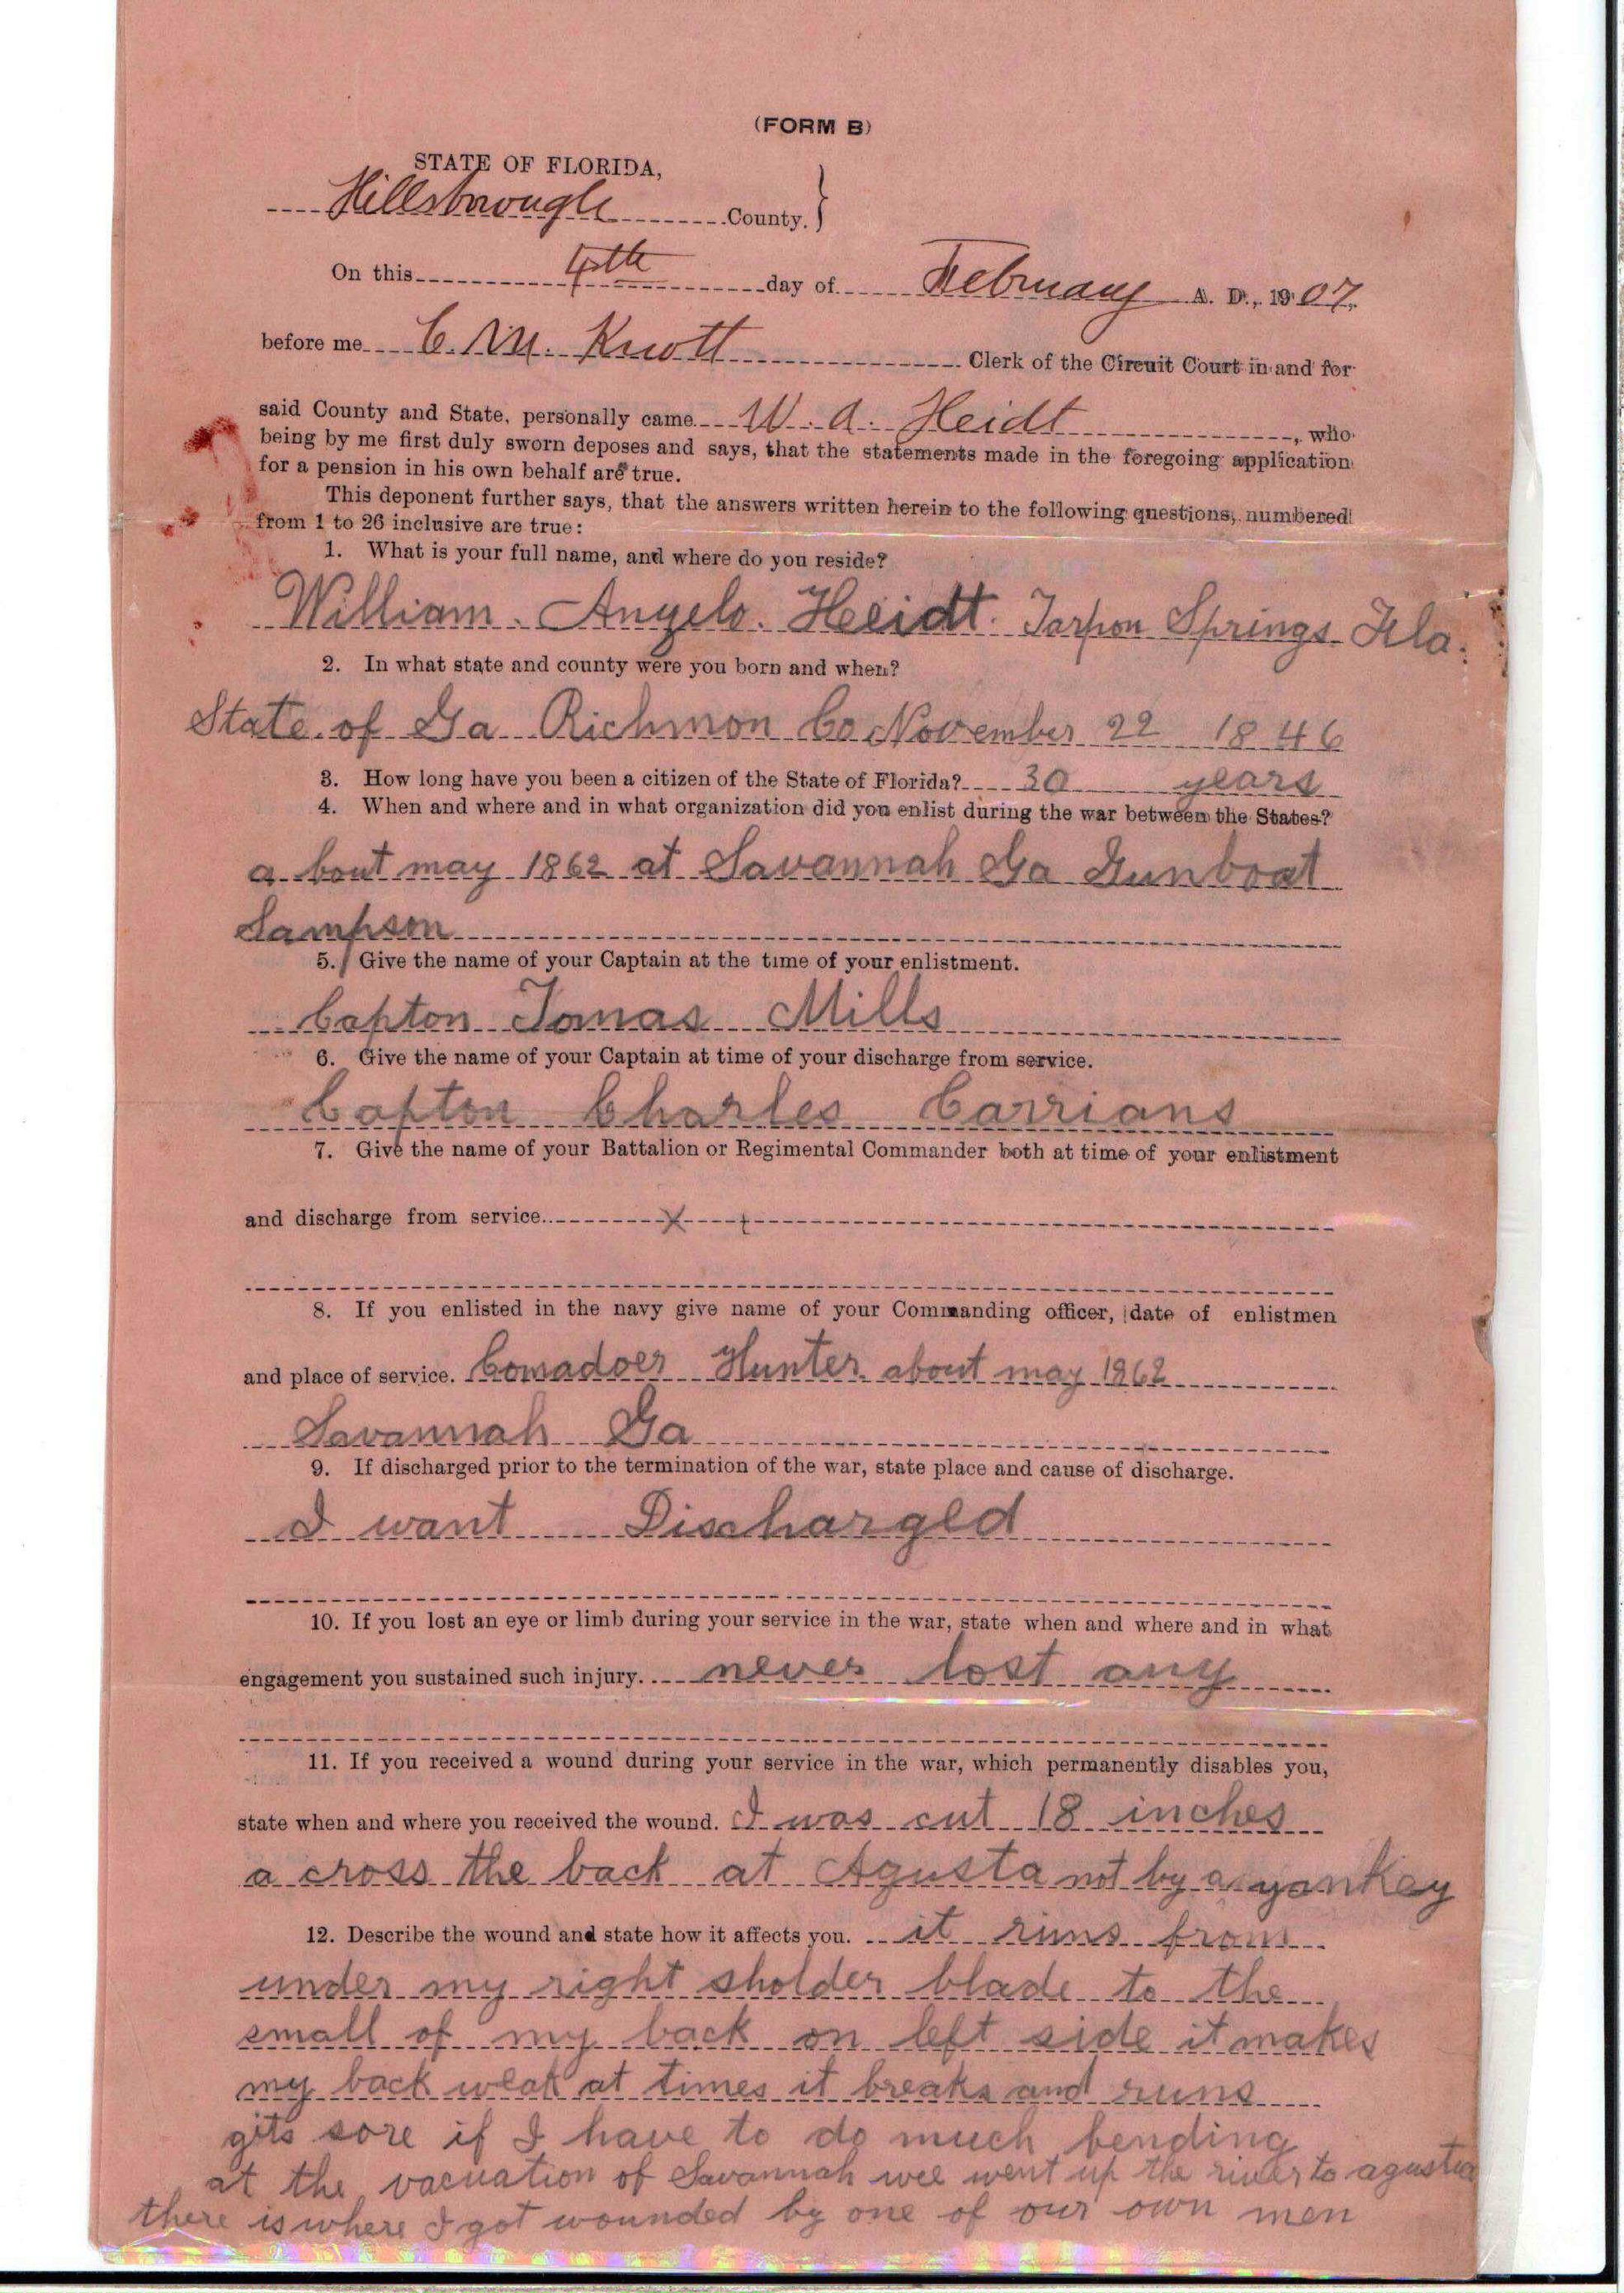 (FORM B)
STATE OF FLORIDA,
Hillsborough County.
On this 4th day of February A. D., 1907,
before me C. M. Knott Clerk of the Circuit Court in and for
said County and State, personally came W. A. Heidt, who
being by me first duly sworn deposes and says, that the statements made in the foregoing application
for a pension in his own behalf are true.
This deponent further says, that the answers written herein to the following questions, numbered
from 1 to 26 inclusive are true:
1. What is your full name, and where do you reside?
William. Angelo. Heidt. Tarpon Springs Fla.
2. In what state and county were you born and when?
State of Ga Richmon Co November 22 1846
3. How long have you been a citizen of the State of Florida? 30 years
4. When and where and in what organization did you enlist during the war between the States?
a bout may 1862 at Savannah Ga Gunboat
Sampson
5. Give the name of your Captain at the time of your enlistment.
Capton Tomas Mills
6. Give the name of your Captain at time of your discharge from service.
Capton Charles Carrians
7. Give the name of your Battalion or Regimental Commander both at time of your enlistment
and discharge from service. X +
8. If you enlisted in the navy give name of your Commanding officer, date of enlistmen
and place of service. Comadoer Hunter about may 1862
Savannah Ga
9. If discharged prior to the termination of the war, state place and cause of discharge.
I want Discharged
10. If you lost an eye or limb during your service in the war, state when and where and in what
engagement you sustained such injury. never lost any
11. If you received a wound during your service in the war, which permanently disables you,
state when and where you received the wound. I was cut 18 inches
a cross the back at Agusta not by a yankey
12. Describe the wound and state how it affects you. it runs from
under my right sholder blade to the
small of my back on left side it makes
my back weak at times it breaks and runs
gits sore if I have to do much bending
at the vacuation of Savannah wee went up the river to agusta
there is where I got wounded by one of our own men